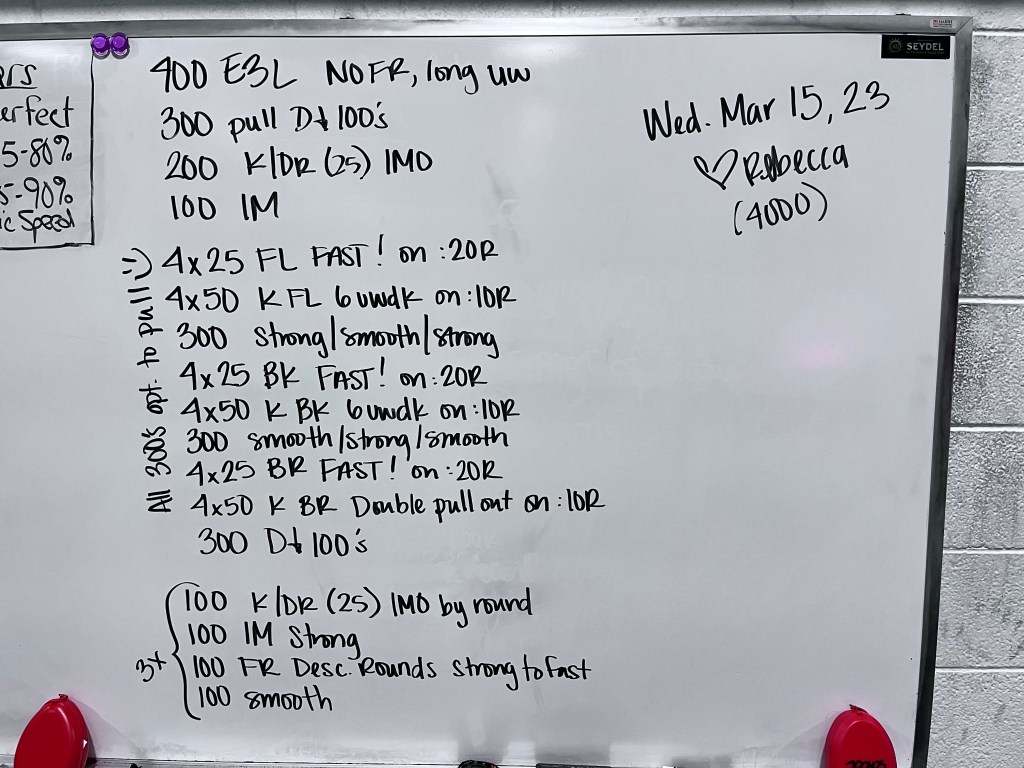 SEYDEL
rs
erfect
5-80%
5-90%
ic Speed
400 E3L NO FR, long uw
300 pull D↓ 100's
200 K/DR (25) IMO
100 IM
Wed. Mar 15, 23
♡ Rebecca
(4000)
4x25 FL FAST! on :20R
4x50 K FL 6 uwdk on :10R
300 strong/smooth/strong
4x25 BK FAST! on :20R
4x50 K BK 6 uwdk on :10R
300 smooth/strong/smooth
4x25 BR FAST! on :20R
4x50 K BR Double pull out on :10R
300 D↓ 100's
All 300's opt. to pull! :-)
3x
100 K/DR (25) IMO by round
100 IM Strong
100 FR Desc. Rounds strong to fast
100 smooth